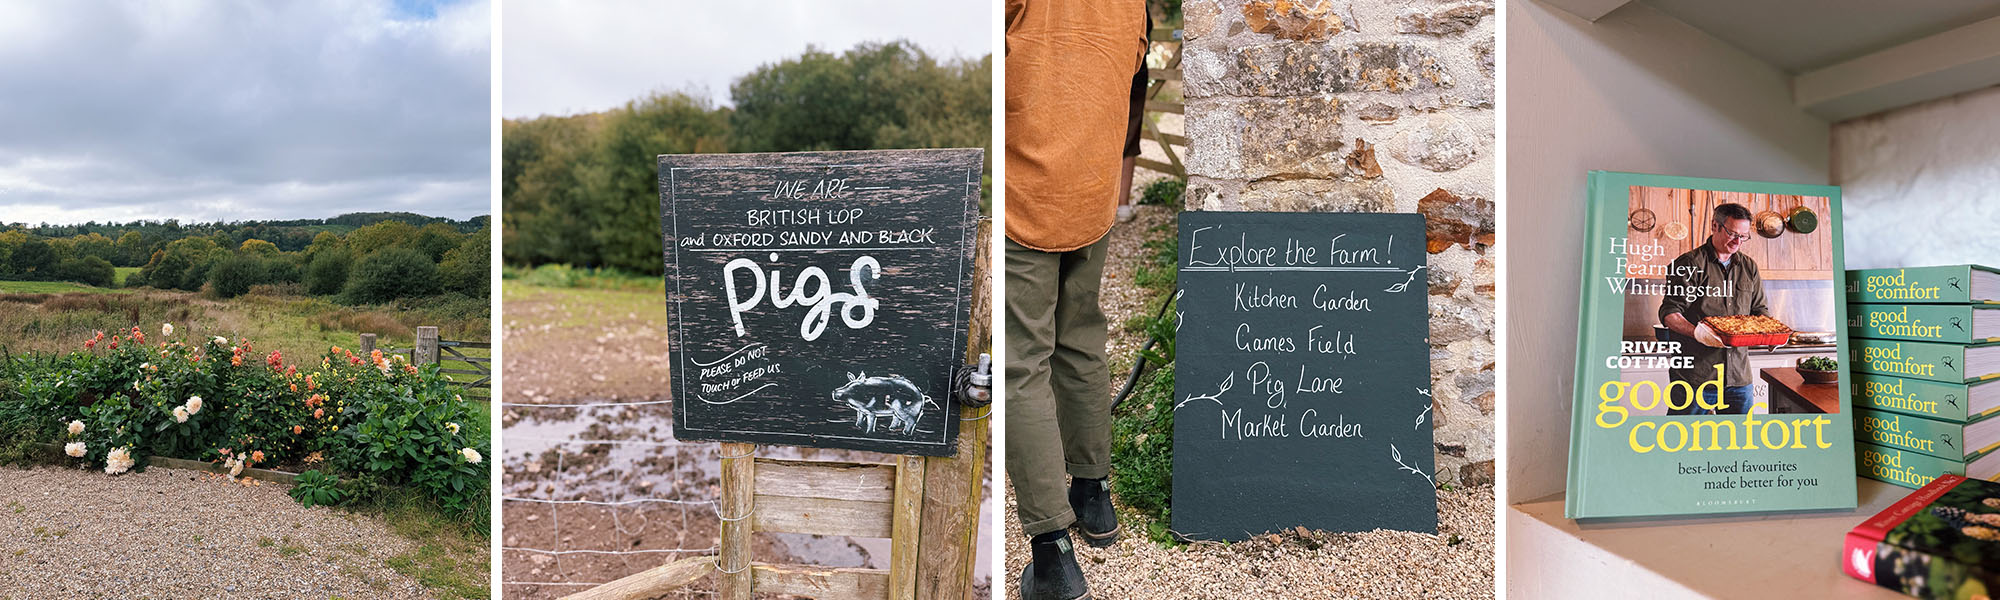 WE ARE
BRITISH LOP
and OXFORD SANDY AND BLACK
pigs
PLEASE DO NOT
TOUCH or FEED US
Explore the Farm!
Kitchen Garden
Games Field
Pig Lane
Market Garden
Hugh
Fearnley-
Whittingstall
RIVER
COTTAGE
good
comfort
best-loved favourites
made better for you
BLOOMSBURY
good
comfort
good
comfort
good
comfort
good
comfort
good
comfort
good
River Cottage Handbook No.7